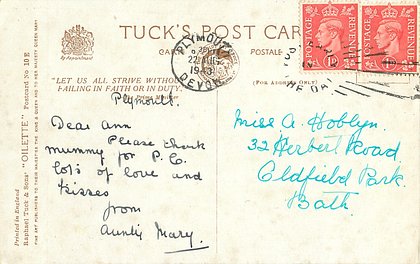 TUCK'S POST CARD
CA
POSTALE
By Appointment
"LET US ALL STRIVE WITHOUT
FAILING IN FAITH OR IN DUTY."
Prime Minister
(FOR ADDRESS ONLY)
PLYMOUTH
DEVON
POSTAGE REVENUE
1D
POSTAGE REVENUE
Plymouth.
Dear Ann
Please thank
mummy for P.C.
lots of love and
kisses
from
Auntie Mary.
Miss A. Hoblyn
32 Herbert Road,
Oldfield Park.
Bath.
"OILETTE" Postcard No. 10 E
Raphael Tuck & Sons'
FINE ART PUBLISHERS TO THEIR MAJESTIES THE KING & QUEEN AND TO HER MAJESTY QUEEN MARY
Printed in England